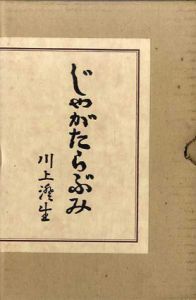 じやがたらぶみ
川上澄生